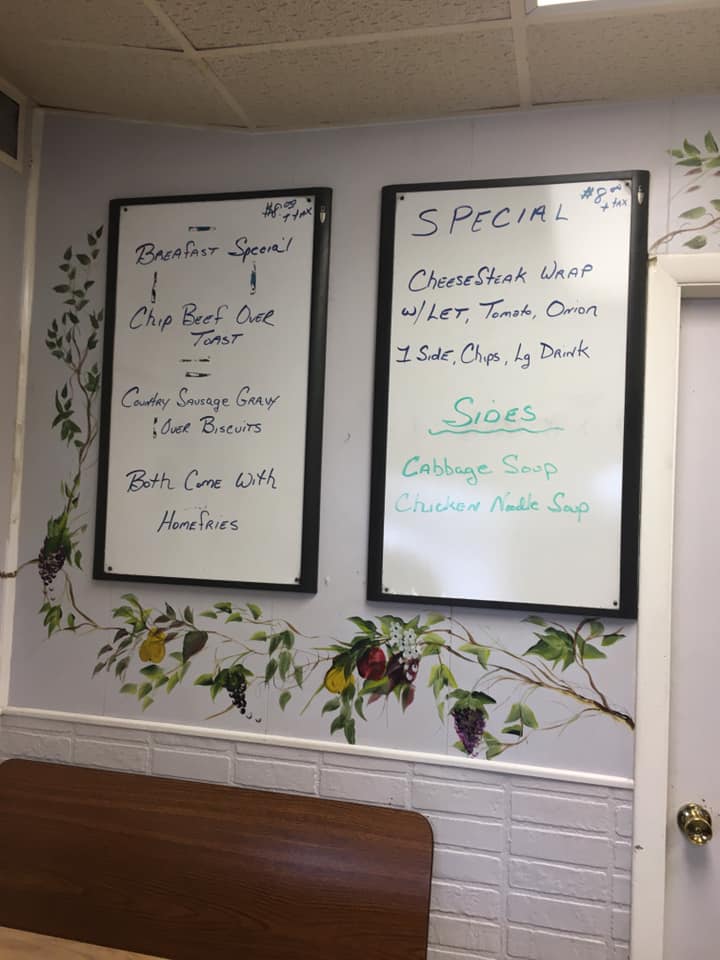 #8.00
+ tax
Breafast Special
Chip Beef Over
Toast
Country Sausage Gravy
Over Biscuits
Both Come With
Homefries
#8.00
+ tax
SPECIAL
CheeseSteak Wrap
w/ Let, Tomato, Onion
1 Side, Chips, Lg Drink
Sides
Cabbage Soup
Chicken Noodle Soup